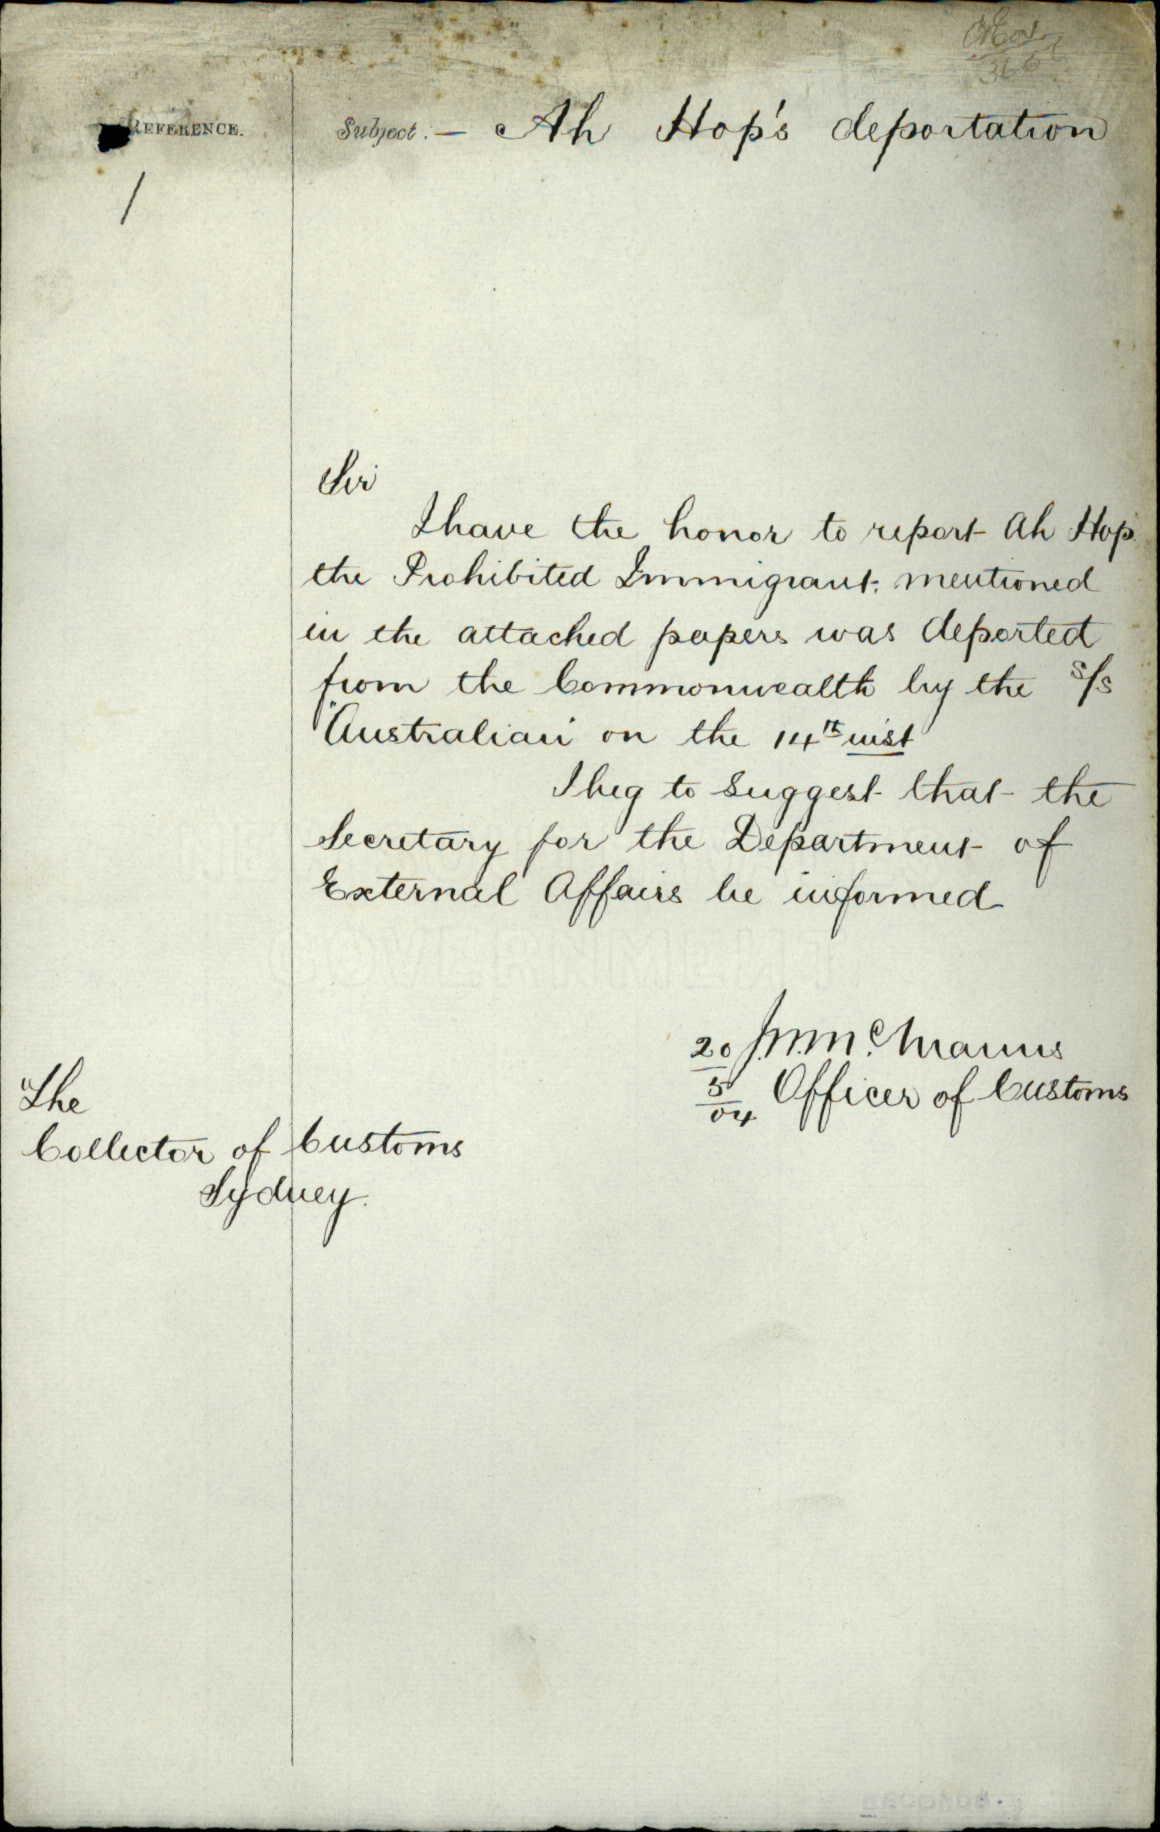 REFERENCE.
Subject. — Ah Hop's deportation
/
Sir
I have the honor to report Ah Hop
the Prohibited Immigrant mentioned
in the attached papers was deported
from the Commonwealth by the s/s
"Australian" on the 14th inst
I beg to suggest that the
Secretary for the Department of
External Affairs be informed
GOVERNMENT
20 J.W. McManus
5 Officer of Customs
04
The
Collector of Customs
Sydney.